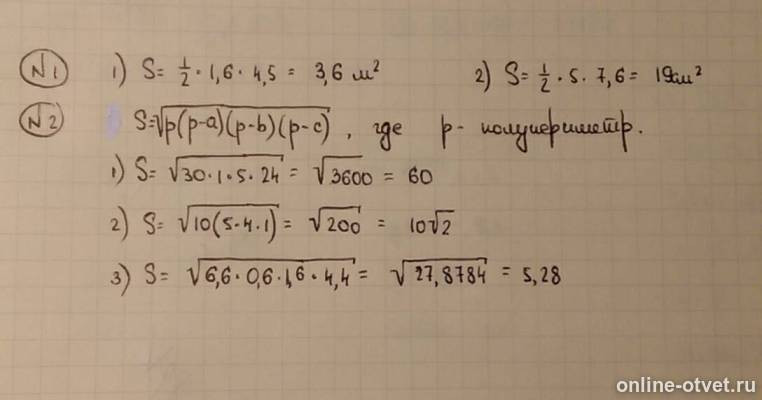 N1 1) S = 1/2 · 1,6 · 4,5 = 3,6 м² 2) S = 1/2 · 5 · 7,6 = 19см²
N2 S=√p(p-a)(p-b)(p-c) , где p- полупериметр.
1) S = √30·1·5·24 = √3600 = 60
2) S = √10(5·4·1) = √200 = 10√2
3) S = √6,6·0,6·1,6·4,4 = √27,8784 = 5,28
online-otvet.ru